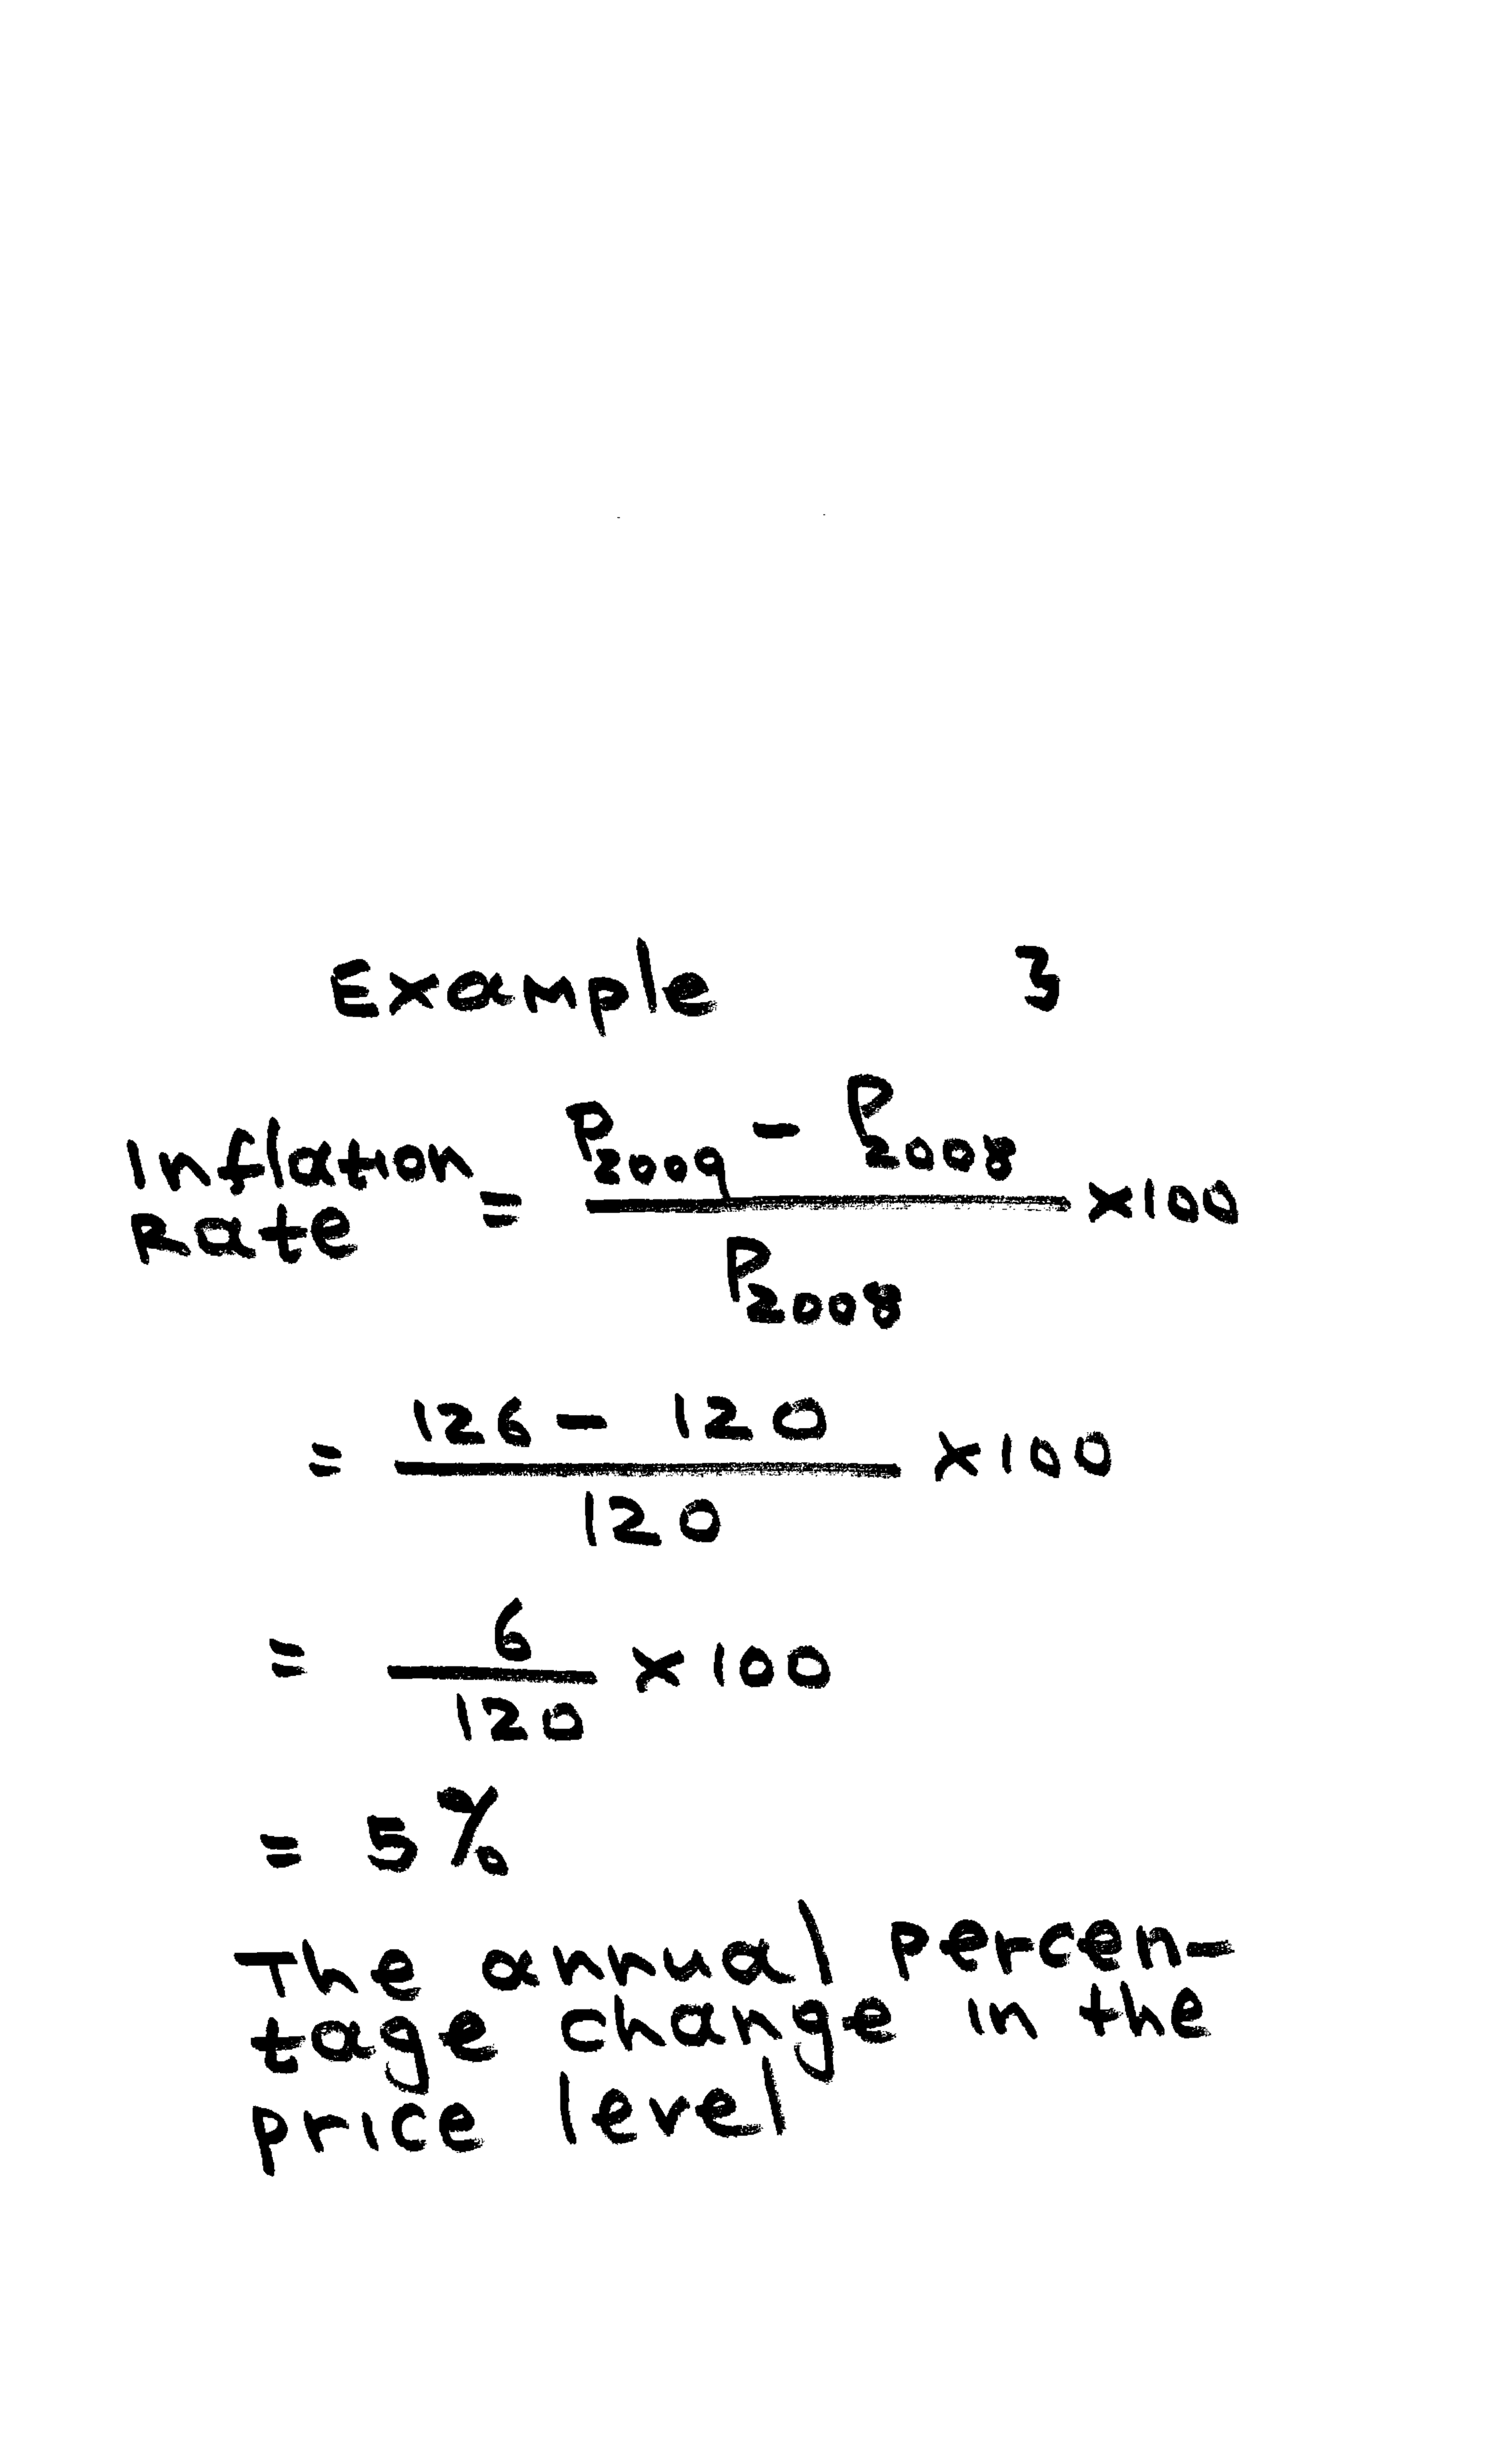 Example 3
Inflation Rate = P2009 - P2008 / P2008 x100
= 126 - 120 / 120 x100
= 6 / 120 x100
= 5%
The annual percen-
tage change in the
price level